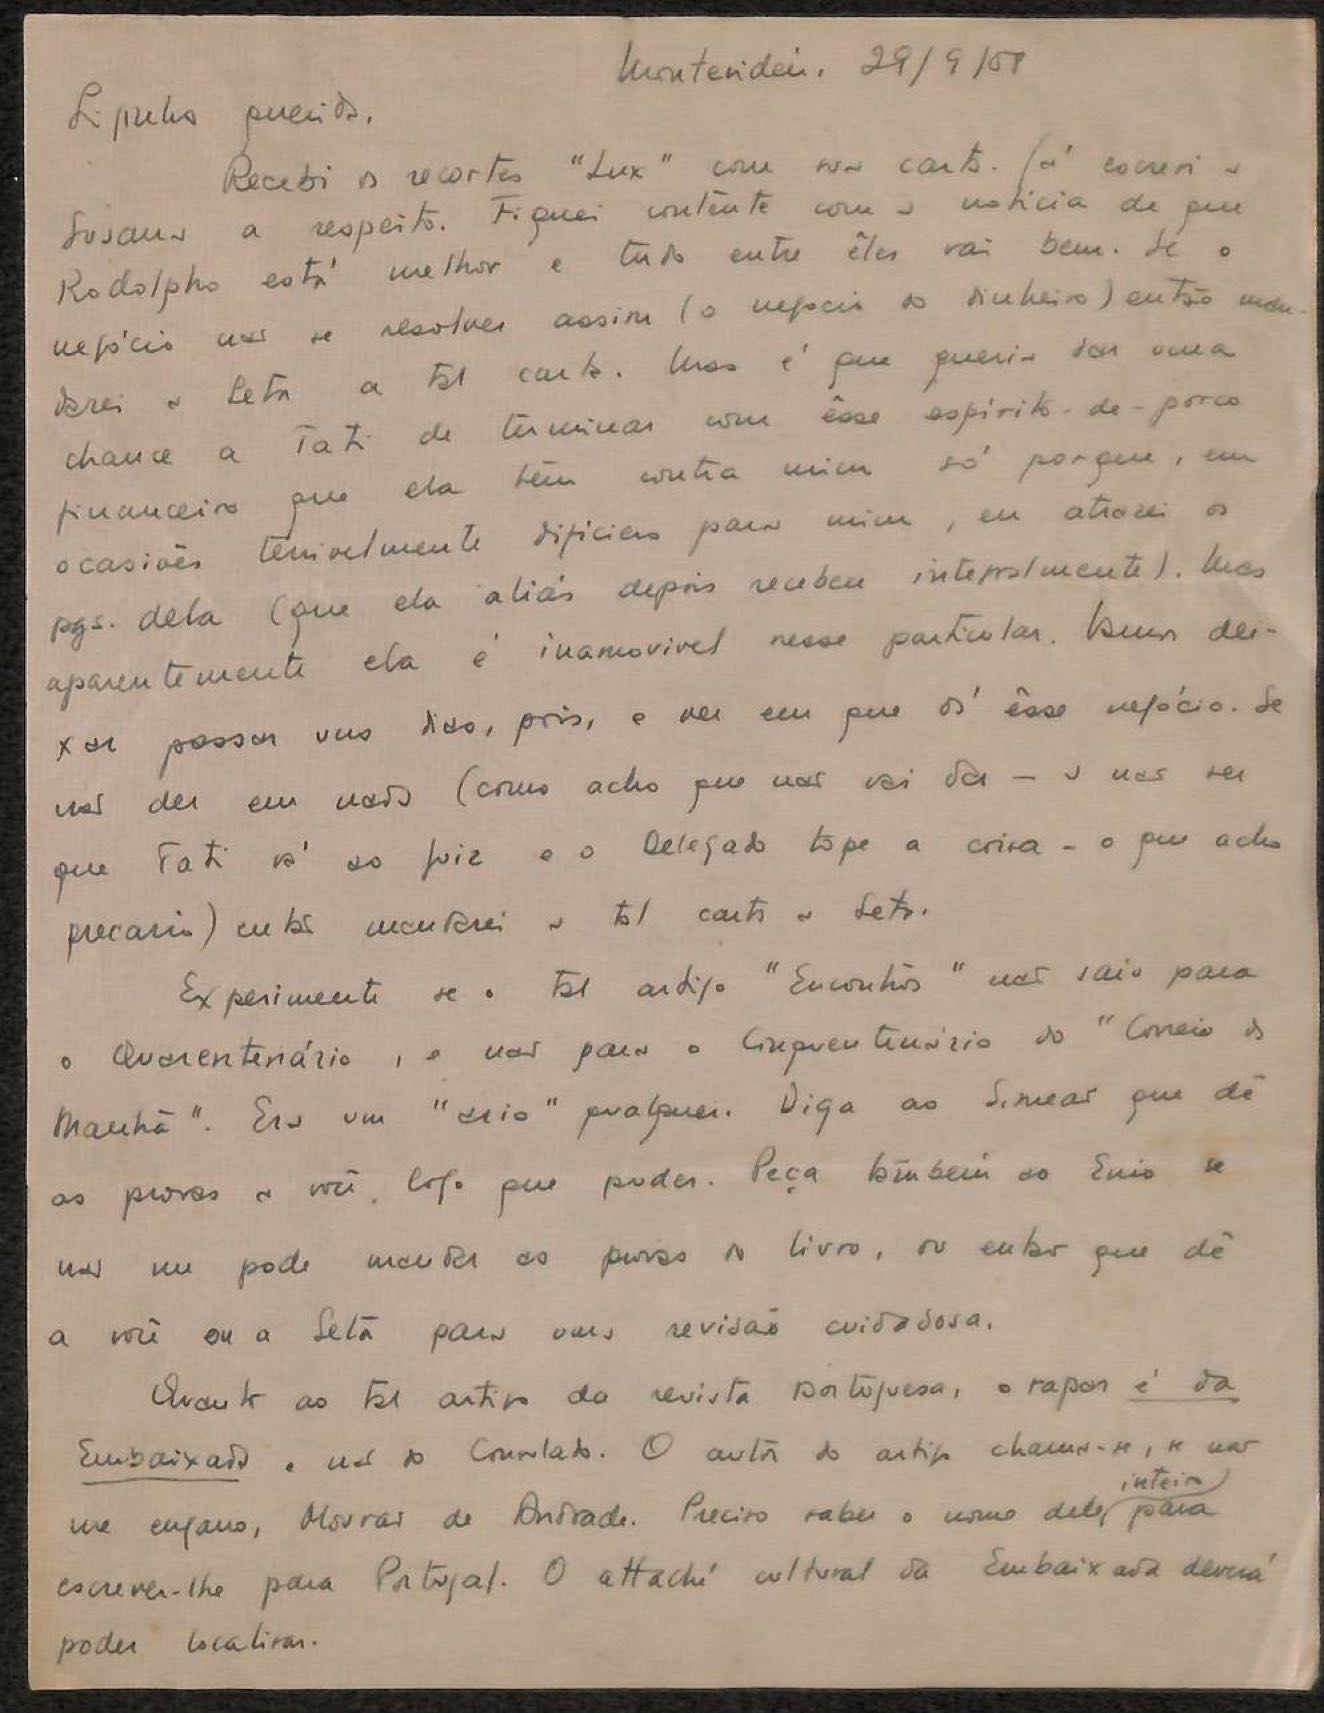 Montevidéu, 29/9/58
querida,
Recebi os recortes "Lux" com sua carta. Já escrevi a
Susana a respeito. Fiquei contente com a notícia de que
Rodolpho está melhor e tudo entre êles vai bem. Se o
negócio não se resolver assim (o negócio do dinheiro) então man-
darei a Leta a tal carta. Mas é que queria dar uma
chance a Tati de terminar com êsse espírito-de-porco
financeiro que ela têm contra mim só porque, em
ocasiões terrivelmente difíceis para mim, eu atrasei os
pgs. dela (que ela aliás depois recebeu integralmente). Mas
aparentemente ela é inamovivel nesse particular. Vamos dei-
xar passar uns dias, pois, e ver em que dá êsse negócio. Se
não der em nada (como acho que não vai dar - a não ser
que Tati vá ao juiz e o Delegado tope a coisa - o que acho
precario) então mandarei a tal carta a Leta.
Experimente se o tal artigo "Encontros" não saiu para
o Quarentenário, e não para o Cinquentenário do "Correio da
Manhã". Era um "ário" qualquer. Diga ao Simeão que dê
as provas a você, logo que puder. Peça também ao Enio se
não me pode mandar as provas do livro, ou então que dê
a você ou a Leta para uma revisão cuidadosa.
Quanto ao tal artigo da revista portuguesa, o rapaz é da
Embaixada e não do Consulado. O autor do artigo chama-se, se não
me engano, Mourão de Andrade. Preciso saber o nome dele inteiro para
escrever-lhe para Portugal. O attaché cultural da Embaixada deverá
poder localizar.